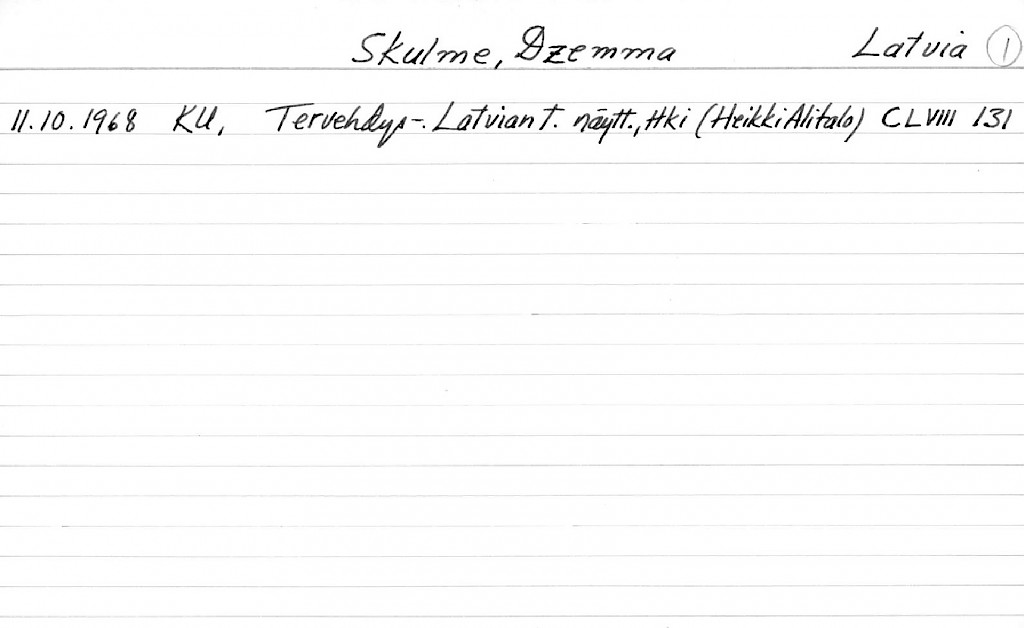 Skulme, Dzemma Latvia 1
11.10.1968 KU, Tervehdys-. Latvian t. näytt., Hki (Heikki Alitalo) CLVIII 131